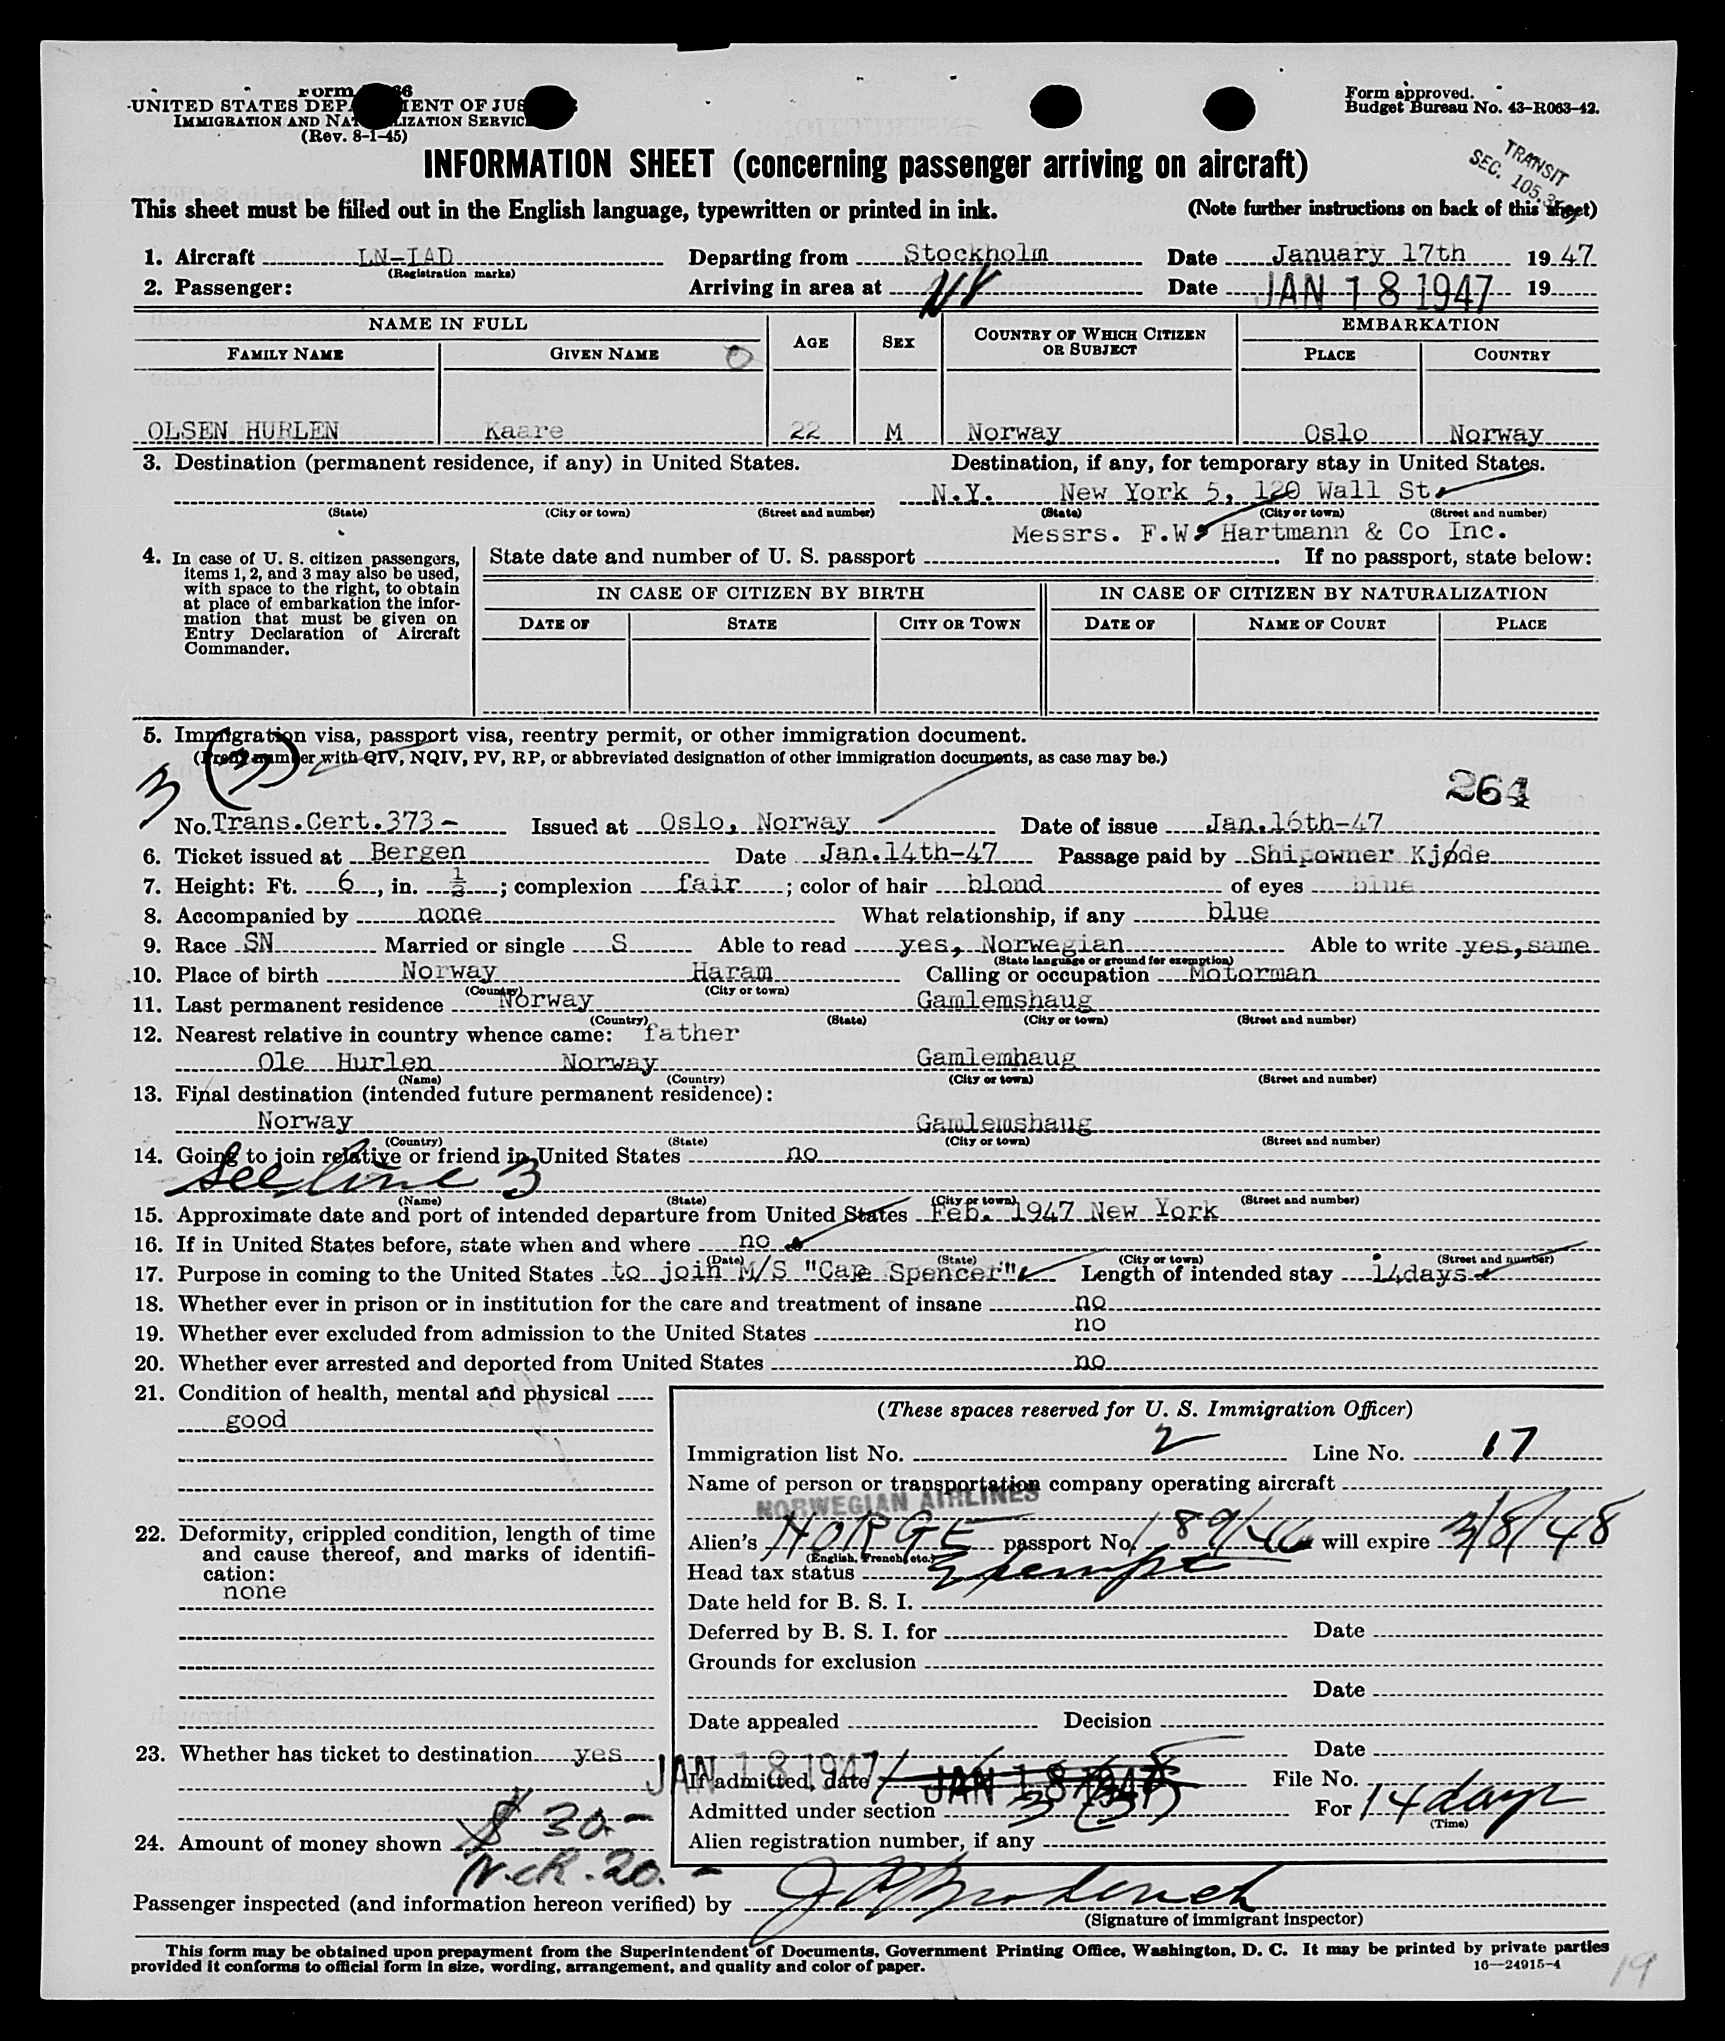 Form approved.
Budget Bureau No. 43-R063-42.
IMMIGRATION AND
(Rev. 8-1-45)
INFORMATION SHEET (concerning passenger arriving on aircraft)
TRANSIT
SEC. 105.3
This sheet must be filled out in the English language, typewritten or printed in ink.
(Note further instructions on back of this sheet)
1. Aircraft LN-IAD Departing from Stockholm Date January 17th 1947
(Registration marks)
2. Passenger: Arriving in area at NY Date JAN 18 1947 19
NAME IN FULL
FAMILY NAME GIVEN NAME AGE SEX COUNTRY OF WHICH CITIZEN OR SUBJECT EMBARKATION PLACE COUNTRY
OLSEN HURLEN Kaare 22 M Norway Oslo Norway
3. Destination (permanent residence, if any) in United States. Destination, if any, for temporary stay in United States.
N.Y. New York 5, 120 Wall St.
(State) (City or town) (Street and number) (State) (City or town) (Street and number)
Messrs. F.W. Hartmann & Co Inc.
4. In case of U. S. citizen passengers, items 1, 2, and 3 may also be used, with space to the right, to obtain at place of embarkation the information that must be given on Entry Declaration of Aircraft Commander.
State date and number of U. S. passport . If no passport, state below:
IN CASE OF CITIZEN BY BIRTH IN CASE OF CITIZEN BY NATURALIZATION
DATE OF STATE CITY OR TOWN DATE OF NAME OF COURT PLACE
5. Immigration visa, passport visa, reentry permit, or other immigration document.
(Prefix number with QIV, NQIV, PV, RP, or abbreviated designation of other immigration documents, as case may be.)
3 (3)
264
No. Trans.Cert.373- Issued at Oslo, Norway Date of issue Jan.16th-47
6. Ticket issued at Bergen Date Jan.14th-47 Passage paid by Shipowner Kjøde
7. Height: Ft. 6, in. ½; complexion fair; color of hair blond of eyes blue
8. Accompanied by none What relationship, if any blue
9. Race SN Married or single S Able to read yes, Norwegian Able to write yes, same
(State language or ground for exemption)
10. Place of birth Norway Haram Calling or occupation Motorman
(Country) (City or town)
11. Last permanent residence Norway Gamlemshaug
(Country) (State) (City or town) (Street and number)
12. Nearest relative in country whence came: father
Ole Hurlen Norway Gamlemhaug
(Name) (Country) (City or town) (Street and number)
13. Final destination (intended future permanent residence):
Norway Gamlemshaug
(Country) (State) (City or town) (Street and number)
14. Going to join relative or friend in United States no
See line 3
(Name) (State) (City or town) (Street and number)
15. Approximate date and port of intended departure from United States Feb. 1947 New York
16. If in United States before, state when and where no
(Date) (State) (City or town) (Street and number)
17. Purpose in coming to the United States to join M/S "Cape Spencer" Length of intended stay 14days
18. Whether ever in prison or in institution for the care and treatment of insane no
19. Whether ever excluded from admission to the United States no
20. Whether ever arrested and deported from United States no
21. Condition of health, mental and physical
good
22. Deformity, crippled condition, length of time and cause thereof, and marks of identification:
none
23. Whether has ticket to destination yes
24. Amount of money shown $ 30.-
N.cR. 20.-
(These spaces reserved for U. S. Immigration Officer)
Immigration list No. 2 Line No. 17
Name of person or transportation company operating aircraft
NORWEGIAN AIRLINES
Alien's NORGE passport No. 189/46 will expire 3/8/48
(English, French, etc.)
Head tax status Exempt
Date held for B. S. I.
Deferred by B. S. I. for Date
Grounds for exclusion
Date
Date appealed Decision
Date
JAN 18 1947
If admitted, date JAN 18 1947 File No.
Admitted under section 3 (3) For 14 days
(Time)
Alien registration number, if any
Passenger inspected (and information hereon verified) by
(Signature of immigrant inspector)
This form may be obtained upon prepayment from the Superintendent of Documents, Government Printing Office, Washington, D. C. It may be printed by private parties
provided it conforms to official form in size, wording, arrangement, and quality and color of paper.
16—24915-4
19